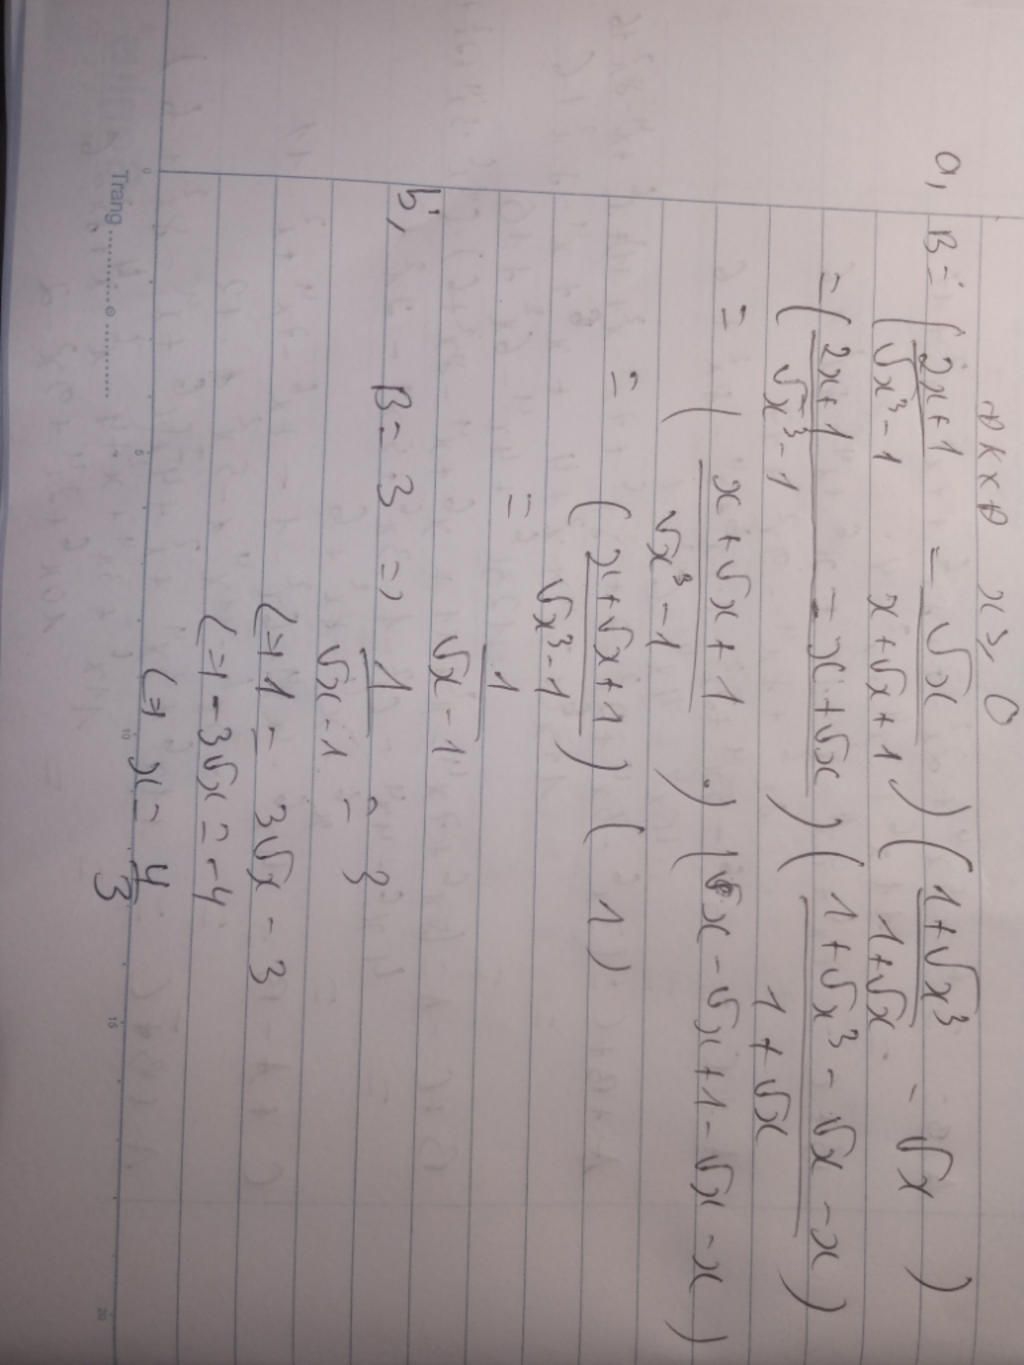 ĐKXĐ x ≥ 0
a, B = ( (2x+1)/(√x³-1) - √x/(x+√x+1) ) ( (1+√x³)/(1+√x) - √x )
= ( (2x+1 - x+√x)/(√x³-1) ) ( (1+√x³-√x-x)/(1+√x) )
= ( (x+√x+1)/(√x³-1) ) ( x-√x+1-√x-x )
= ( (x+√x+1)/(√x³-1) ) ( 1 )
= 1/(√x-1)
b, B = 3 => 1/(√x-1) = 3
<=> 1 = 3√x - 3
<=> -3√x = -4
<=> x = 4/3
Trang
0 5 10 15 20